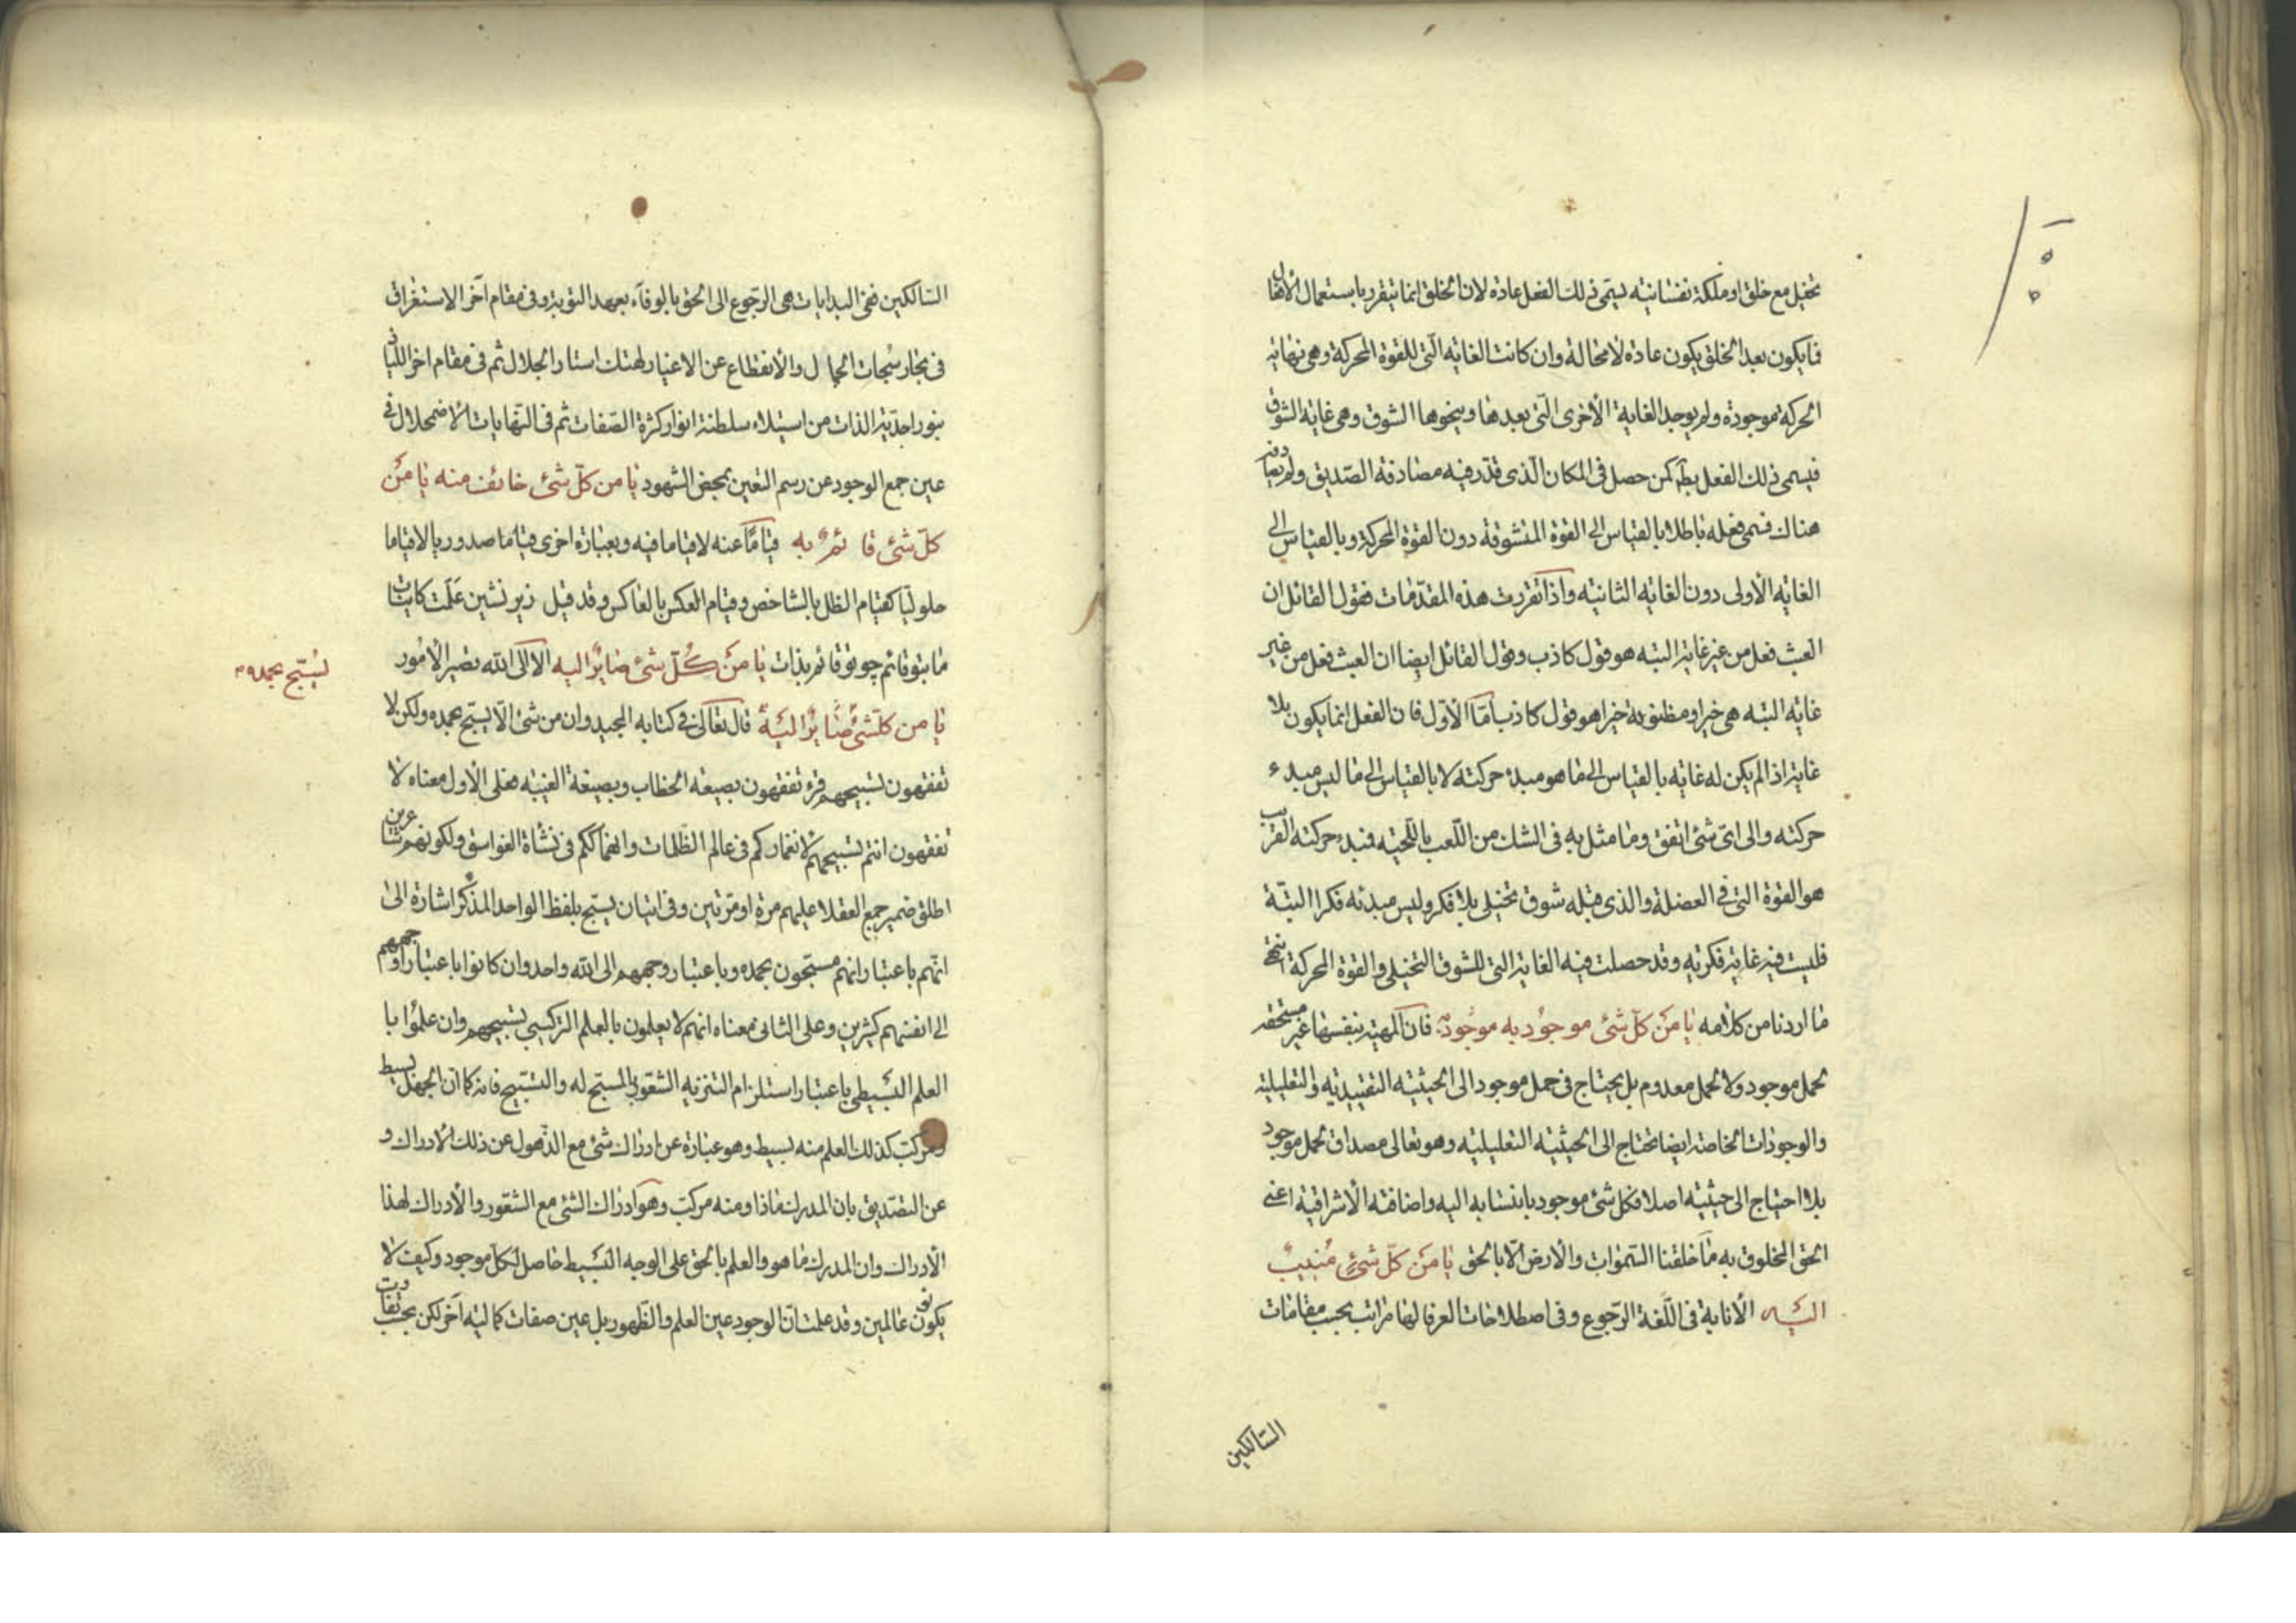 تخيل مع خلق او ملكة نفسانية يسمى ذلك الفعل عادة لان الخلق انما يتقرر باستعمال الأفعال
فما يكون بعد الخلق يكون عادة لا محالة وان كانت الغاية الّتى للقوة المحركة وهى نهاية
الحركة موجودة ولم يوجد الغاية الأخرى الّتى بعدها وينحوها الشوق وهى غاية الشوق
فيسمى ذلك الفعل بط كمن حصل فى المكان الّذى قدّر فيه مصادفة الصّديق ولم يصادفه
هناك فسمى فعله باطلا بالقياس الى القوة المتشوقة دون القوة المحركة وبالقياس الى
الغاية الأولى دون الغاية الثانية واذا تقررت هذه المقدّمات فقول القائل ان
العبث فعل من غير غاية البتة هو قول كاذب وقول القائل ايضا ان العبث فعل من غير
غاية البتة هى خير او مظنونة خيرا هو قول كاذب امّا الأوّل فان الفعل انما يكون بلا
غاية اذا لم يكن له غاية بالقياس الى ما هو مبدء حركته لا بالقياس الى ما ليس مبدء
حركته والى اىّ شئ اتفق وما مثل به فى الشك من اللّعب باللّحية فمبدء حركته القريب
هو القوة التى فى العضلة والذى قبله شوق تخيلى بلا فكر وليس مبدئه فكرا البتّة
فليست فيه غاية فكرية وقد حصلت فيه الغاية التى للشوق التخيلى والقوة المحركة انتهى
ما اردنا من كلامه يا من كلّ شئ موجود به موجود فان المهية بنفسها غير مستحقة
لحمل موجود ولا لحمل معدوم بل يحتاج فى حمل موجود الى الحيثية التقييدية والتعليلية
والوجودات الخاصة ايضا تحتاج الى الحيثية التعليلية وهو تعالى مصداق لحمل موجود
بلا احتياج الى حيثية اصلا فكل شئ موجود بانتسابه اليه واضافته الأشراقية اعنى
الحق المخلوق به ما خلقنا السّموات والأرض الّا بالحق يا من كلّ شئ منيب
اليه الأنابة فى اللّغة الرّجوع وفى اصطلاحات العرفا لها مراتب بحسب مقامات
السّالكين
السّالكين ففى البدايات هى الرّجوع الى الحق بالوفاء بعهد التوبة وفى مقام آخر الاستغراق
فى بحار سبحات الجمال والأنقطاع عن الاغيار لهتك استار الجلال ثم فى مقام اخر اللياذ
بنور احدّية الذات من استيلاء سلطنة انوار كثرة الصّفات ثم فى النّهايات الأضمحلال فى
عين جمع الوجود عن رسم التعين بمحض الشهود يا من كلّ شئ خائف منه يا من
كلّ شئ قائم به قياما عنه لا قياما فيه وبعبارة اخرى قياما صدوريا لا قياما
حلوليا كقيام الظل بالشاخص وقيام العكس بالعاكس وقد قيل زير نشين علمت كاينات
ما بتو قائم چو تو قائم بذات يا من كلّ شئ صاير اليه الا الى الله تصير الأمور
يا من كلّ شئ صاير اليه قال تعالى فى كتابه المجيد وان من شئ الّا يسبّح بحمده ولكن لا
يسبّح بحمده
تفقهون تسبيحهم قرء تفقهون بصيغة الخطاب وبصيغة الغيبة فعلى الأول معناه لا
تفقهون انتم تسبيحهم لأنغماركم فى عالم الظّلمات وانهماككم فى نشأة الغواسق ولكونهم شاعرين
اطلق ضمير جمع العقلا عليهم مرة او مرّتين وفى اتيان يسبّح بلفظ الواحد المذكر اشارة الى
انّهم باعتبار انهم مسبّحون بحمده وباعتبار وجههم الى الله واحد وان كانوا باعتبار اوجههم
الى انفسهم كثيرين وعلى الثانى معناه انهم لا يعلمون بالعلم التركيبى تسبيحهم وان علموا با
العلم البسيطى باعتبار استلزام التنزيه الشعور بالمسبّح له والتسبيح فانه كما انّ الجهل بسيط
ومركب كذلك العلم منه بسيط وهو عبارة عن ادراك شئ مع الذّهول عن ذلك الأدراك و
عن التصّديق بان المدرك ماذا ومنه مركب وهو ادراك الشئ مع الشّعور والأدراك لهذا
الأدراك وان المدرك ما هو والعلم بالحق على الوجه البسيط حاصل لكلّ موجود وكيف لا
يكونون عالمين وقد علمت انّ الوجود عين العلم والظّهور بل عين صفات كمالية آخر لكن بحسب تفاوت